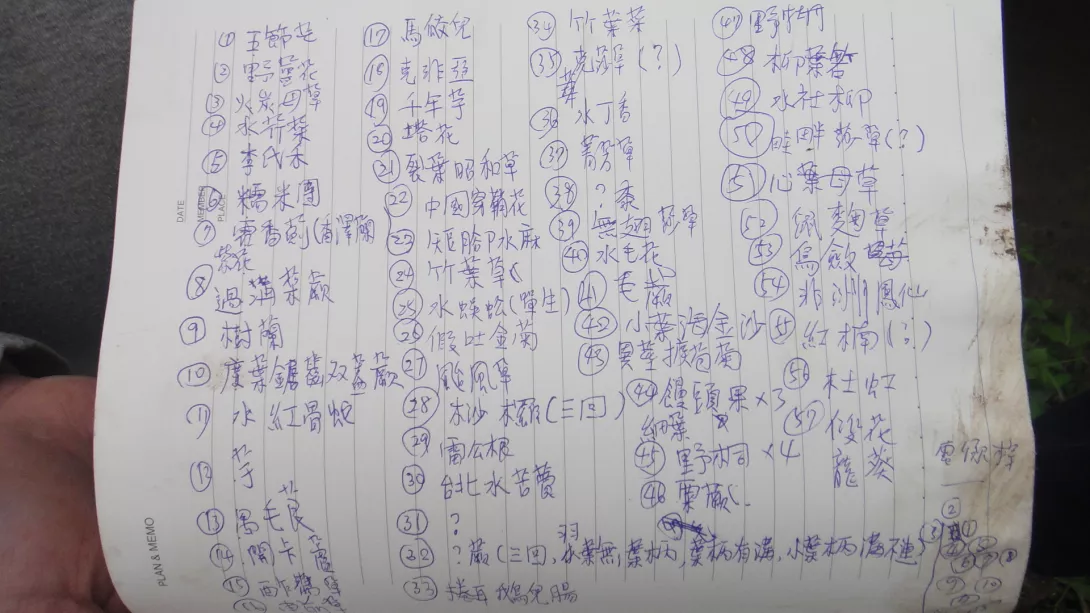 ① 玉節花
② 野薑花
③ 火炭母草
④ 水芹菜
⑤ 李氏禾
⑥ 糯米團
⑦ 藿香薊(香澤蘭
⑧ 過溝菜蕨
紫花
⑨ 樹蘭
⑩ 廣葉鋸齒双蓋蕨
⑪ 水紅骨蛇
⑫ 芋
⑬ 禺毛茛
⑭
⑮
⑰ 馬㼎兒
⑱ 克非亞
⑲ 千年芋
⑳ 塔花
㉑ 裂葉昭和草
㉒ 中國穿鞘花
㉓ 短角冷水麻
㉔ 竹葉草
㉕ 水蜈蚣(單生)
㉖ 假吐金菊
㉗ 颱風草
㉘ 木沙椤(三回)
㉙ 雷公根
㉚ 台北水苦蕒
㉛ ?
㉜ ?蕨(三回,羽葉無葉柄,葉柄有溝,小葉柄溝
㉝ 捲耳 鵝兒腸
㉞ 竹葉菜
㉟ 克莎草(?)
㊱ 水丁香
葉
㊲ 菁芳草
㊳ ?黍
㊴ 無翅莎草
㊵ 水毛花
㊶ 毛蕨
㊷ 小葉海金沙
㊸ 異葉
㊹ 饅頭果×3
細葉
㊺ 野桐×4
㊻ 栗蕨
㊼ 野牡丹
㊽ 柳葉箬
㊾ 水社柳
㊿ 畦畔莎草(?)
51 心葉母草
52 鼠麴草
53 烏斂莓
54 非洲鳳仙
55 紅楠(?)
56 杜虹花
57 龍葵
DATE
PLACE
PLAN & MEMO